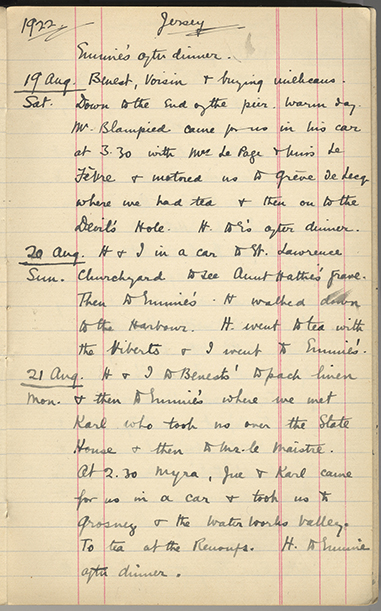 1922 Jersey
Emmie's after dinner.
19 Aug. Benest, Voisin & buying milkcans.
Sat. Down to the End of the pier. Warm day.
Mr. Blampied came for us in his car
at 3.30 with Mrs Le Page & Miss Le
Fèvre & motored us to Grève de Lecq
where we had tea & then on to the
Devil's Hole. H. to E's after dinner.
20 Aug. H & I in a car to St. Lawrence
Sun. Churchyard to see Aunt Hattie's grave.
Then to Emmie's. H walked down
to the Harbour. H. went to tea with
the Viberts & I went to Emmie's.
21 Aug. H & I to Benests' to pack linen
Mon. & then to Emmie's where we met
Karl who took us over the State
House & then to Le Maistre.
At 2.30 Myra, Jue & Karl came
for us in a car & took us to
Grosnez & the Water Works Valley.
To tea at the Renoufs. H. to Emmie
after dinner.